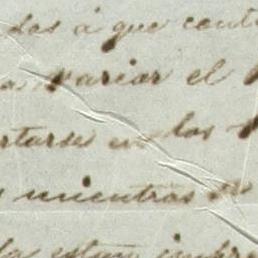 dos á que cont
a variar el
rtarse en las
s mientras
la estan